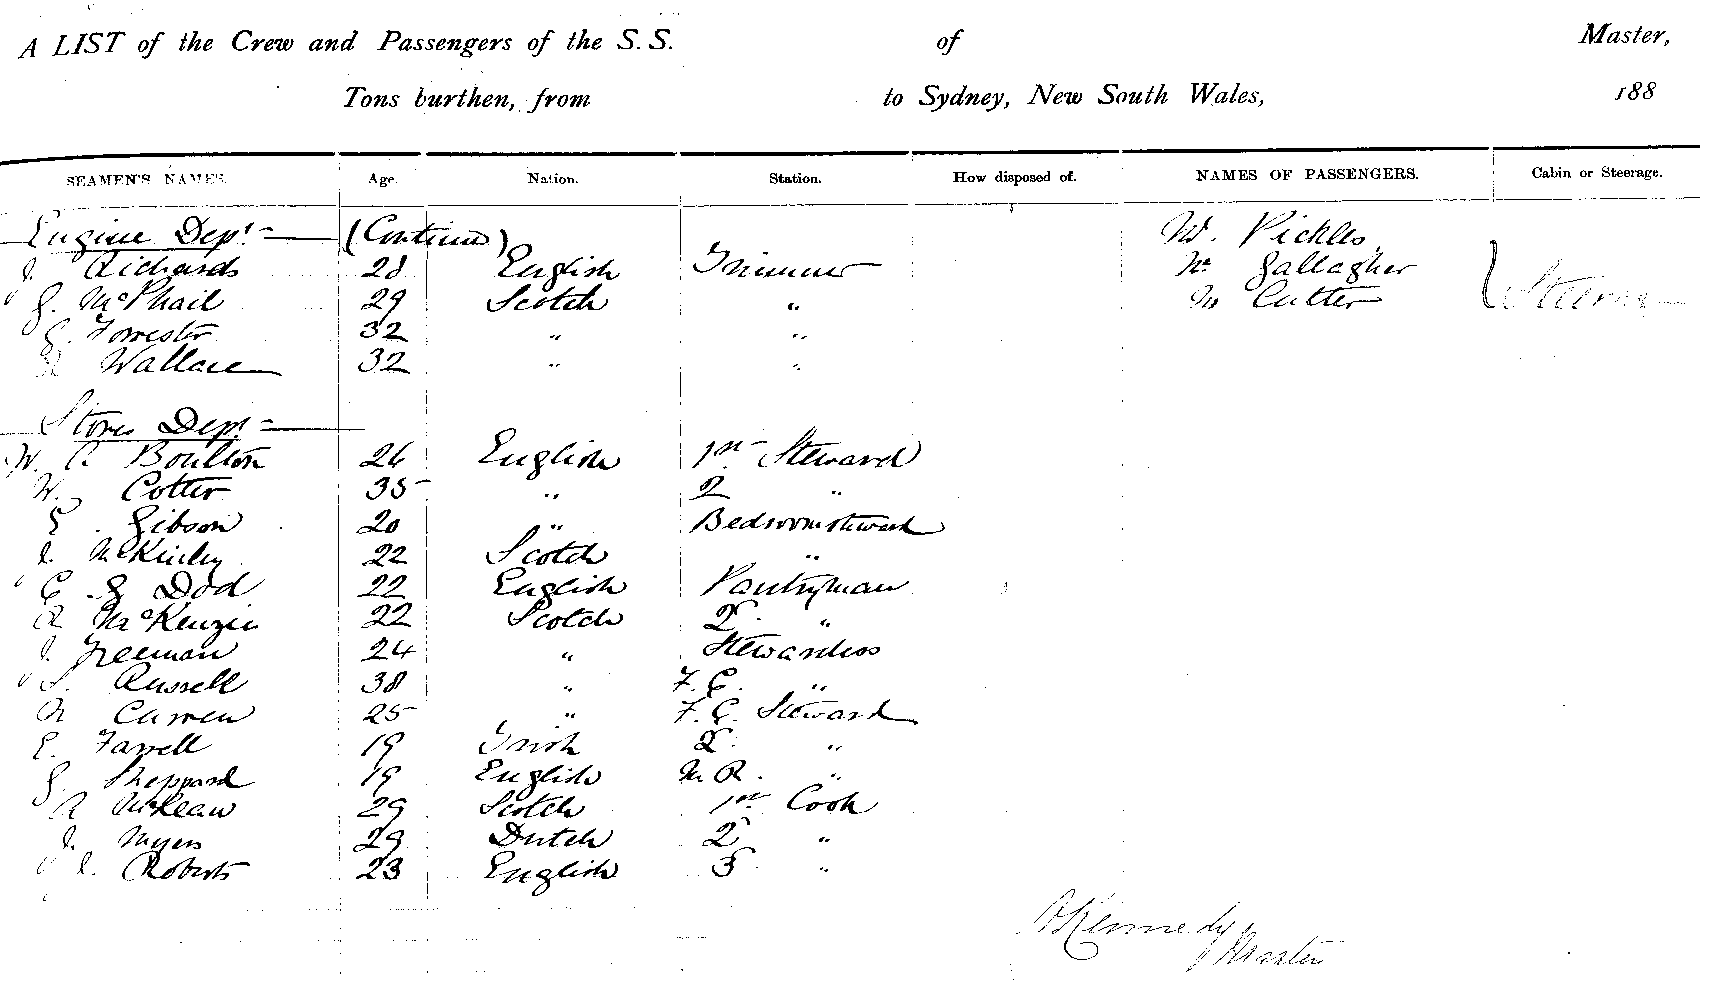 A LIST of the Crew and Passengers of the S.S. of Master,
Tons burthen, from to Sydney, New South Wales, 188
SEAMEN'S NAMES. Age. Nation. Station. How disposed of. NAMES OF PASSENGERS. Cabin or Steerage.
Engine Dept (Continued) W. Pickles
J. Richards 28 English Trimmer Mr Gallagher
G. McPhail 29 Scotch " M Cutter
G. Forrester 32 " "
Wallace 32 " "
Stores Dept
W. A Boulton 26 English 1st Steward
W. Cotter 35 " 2 "
E. Gibson 20 " Bedroomsteward
J. McKinley 22 Scotch "
C. G Dod 22 English Pantryman
A McKenzie 22 Scotch 2 "
J. Freeman 24 " Stewardess
S. Russell 38 " F.C. "
N Curren 25 " F.C. Steward
E. Farrell 19 Irish 2 "
G. Sheppard 19 English M R. "
A McLean 29 Scotch 1st Cook
J. Myers 29 Dutch 2 "
J. Roberts 23 English 3 "
Kennedy
Master